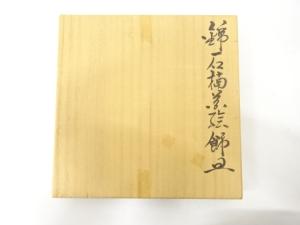 錦石楠花絵飾皿